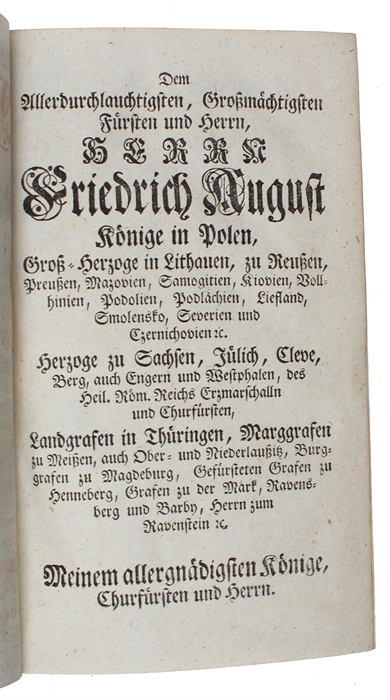 Dem
Allerdurchlauchtigsten, Großmächtigsten
Fürsten und Herrn,
HERRN
Friedrich August
Könige in Polen,
Groß-Herzoge in Lithauen, zu Reußen,
Preußen, Mazovien, Samogitien, Kiovien, Voll-
hinien, Podolien, Podlächien, Liefland,
Smolensko, Severien und
Czernichovien ꝛc.
Herzoge zu Sachsen, Jülich, Cleve,
Berg, auch Engern und Westphalen, des
Heil. Röm. Reichs Erzmarschalln
und Churfürsten,
Landgrafen in Thüringen, Marggrafen
zu Meißen, auch Ober- und Niederlaußitz, Burg-
grafen zu Magdeburg, Gefürsteten Grafen zu
Henneberg, Grafen zu der Mark, Ravens-
berg und Barby, Herrn zum
Ravenstein ꝛc.
Meinem allergnädigsten Könige,
Churfürsten und Herrn.